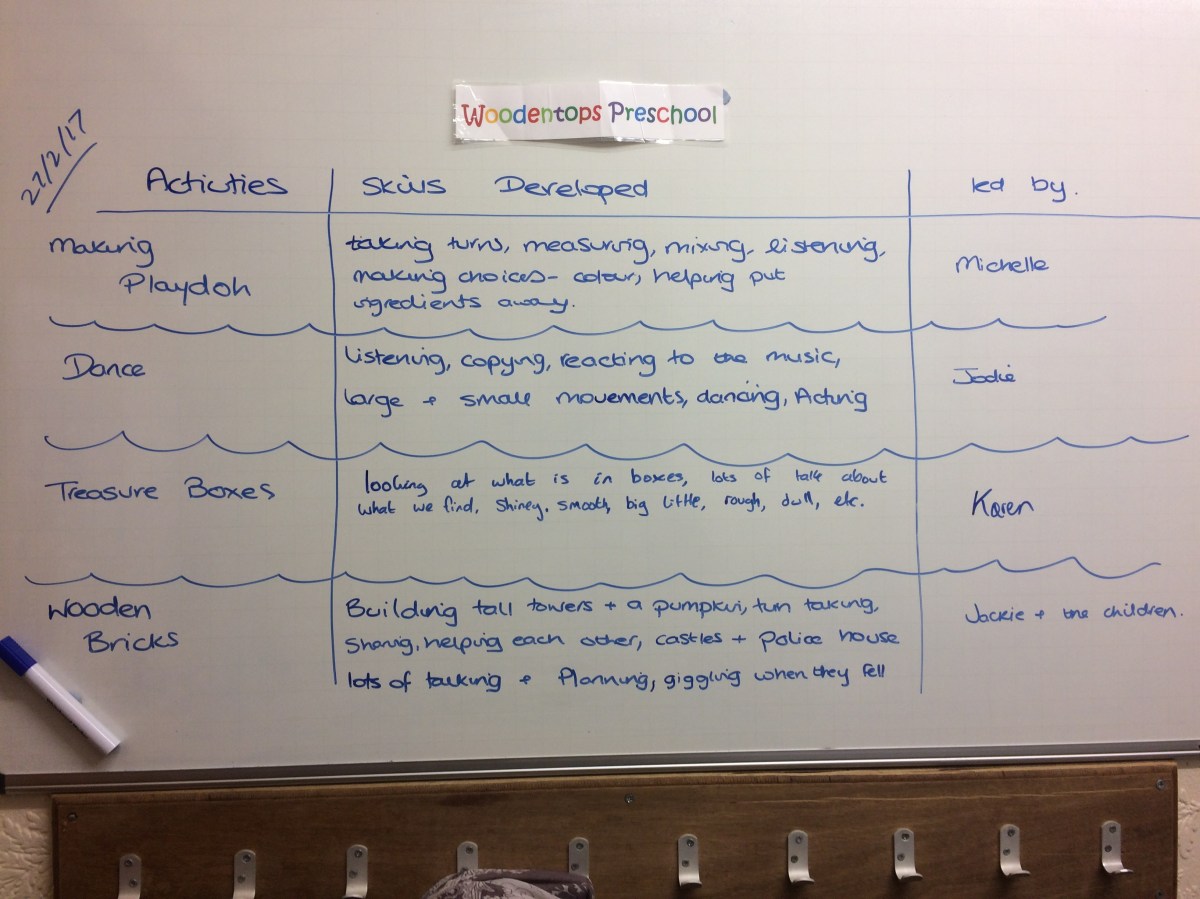 Woodentops Preschool
22/2/17
Activities Skills Developed led by.
Making
Playdoh
taking turns, measuring, mixing, listening,
making choices - colour, helping put
ingredients away.
Michelle
Dance
Listening, copying, reacting to the music,
large + small movements, dancing, Acting
Jodie
Treasure Boxes
looking at what is in boxes, lots of talk about
what we find, Shiney, smooth, big little, rough, dull, etc.
Karen
Wooden
Bricks
Building tall towers + a pumpkin, turn taking,
Sharing, helping each other, castles + Police house
lots of talking + Planning, giggling when they fell
Jackie + the children.